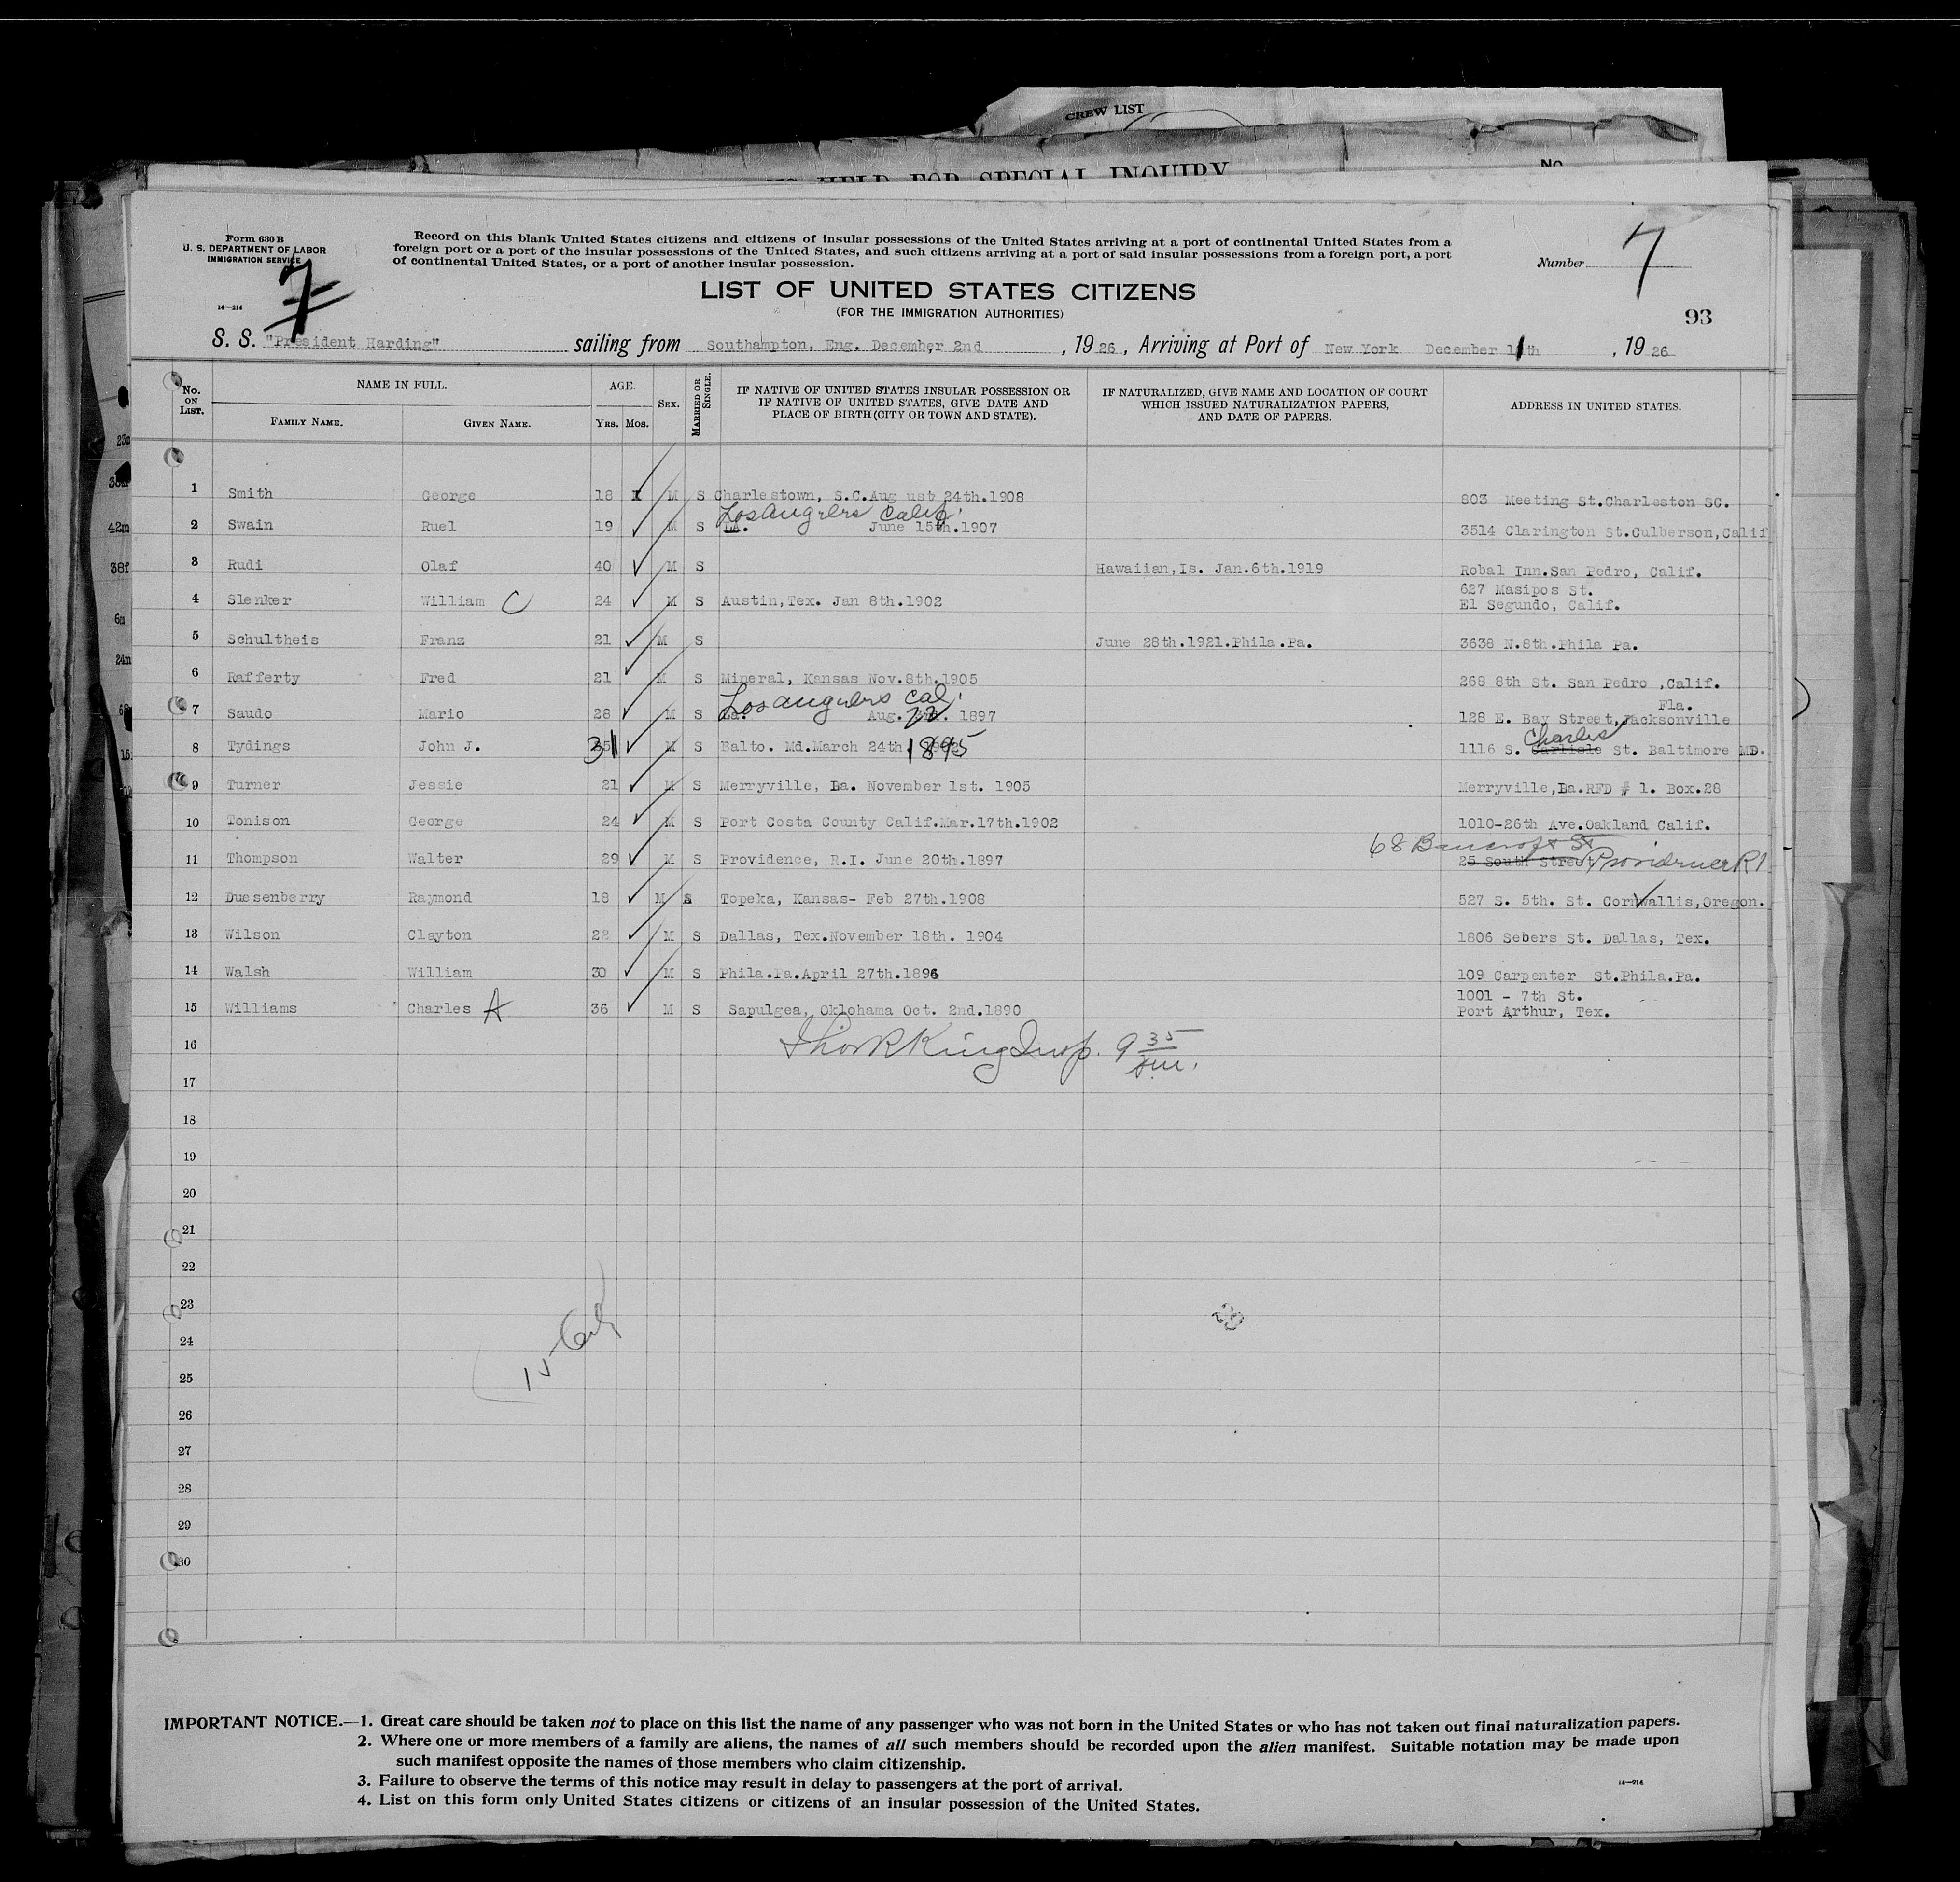 CREW LIST
HELD FOR SPECIAL INQUIRY
No.
Form 630 B
U. S. DEPARTMENT OF LABOR
IMMIGRATION SERVICE
7
14—214
Record on this blank United States citizens and citizens of insular possessions of the United States arriving at a port of continental United States from a
foreign port or a port of the insular possessions of the United States, and such citizens arriving at a port of said insular possessions from a foreign port, a port
of continental United States, or a port of another insular possession.
Number 7
LIST OF UNITED STATES CITIZENS
(FOR THE IMMIGRATION AUTHORITIES)
93
S. S. "President Harding" sailing from Southampton, Eng. December 2nd , 1926 , Arriving at Port of New York December 11th , 1926
No. ON LIST. NAME IN FULL. AGE. SEX. MARRIED OR SINGLE. IF NATIVE OF UNITED STATES INSULAR POSSESSION OR IF NATIVE OF UNITED STATES, GIVE DATE AND PLACE OF BIRTH (CITY OR TOWN AND STATE). IF NATURALIZED, GIVE NAME AND LOCATION OF COURT WHICH ISSUED NATURALIZATION PAPERS, AND DATE OF PAPERS. ADDRESS IN UNITED STATES.
FAMILY NAME. GIVEN NAME. YRS. MOS.
1 Smith George 18 M S Charlestown, S.C.Aug ust 24th.1908 803 Meeting St.Charleston SC.
Los Angeles Calif.
2 Swain Ruel 19 M S LA. June 15th.1907 3514 Clarington St.Culberson,Calif
3 Rudi Olaf 40 M S Hawaiian,Is. Jan.6th.1919 Robal Inn.San Pedro, Calif.
627 Masipos St.
4 Slenker William C 24 M S Austin,Tex. Jan 8th.1902 El Segundo, Calif.
5 Schultheis Franz 21 M S June 28th.1921.Phila.Pa. 3638 N.8th.Phila Pa.
6 Rafferty Fred 21 M S Mineral, Kansas Nov.8th.1905 268 8th St. San Pedro ,Calif.
Los Angeles Cal. Fla.
7 Saudo Mario 28 M S La. Aug. 1897 128 E. Bay Street,Jacksonville
Charles
8 Tydings John J. 31 M S Balto. Md.March 24th. 1895 1116 S. Carlisle St. Baltimore MD.
9 Turner Jessie 21 M S Merryville, La. November 1st. 1905 Merryville,La.RFD # 1. Box.28
10 Tonison George 24 M S Port Costa County Calif.Mar.17th.1902 1010-26th Ave.Oakland Calif.
68 Bancroft St
11 Thompson Walter 29 M S Providence, R.I. June 20th.1897 25 South Street Providence R I
12 Duesenberry Raymond 18 M S Topeka, Kansas- Feb 27th.1908 527 S. 5th. St. Cornwallis,Oregon.
13 Wilson Clayton 22 M S Dallas, Tex.November 18th. 1904 1806 Sebers St. Dallas, Tex.
14 Walsh William 30 M S Phila.Pa.April 27th.1896 109 Carpenter St.Phila.Pa.
1001 - 7th St.
15 Williams Charles A 36 M S Sapulgea, Oklohama Oct. 2nd.1890 Port Arthur, Tex.
16 King Insp. 9 35
17
18
19
20
21
22
23
24
25
26
27
28
29
30
IMPORTANT NOTICE.—1. Great care should be taken not to place on this list the name of any passenger who was not born in the United States or who has not taken out final naturalization papers.
2. Where one or more members of a family are aliens, the names of all such members should be recorded upon the alien manifest. Suitable notation may be made upon
such manifest opposite the names of those members who claim citizenship.
3. Failure to observe the terms of this notice may result in delay to passengers at the port of arrival.
14—214
4. List on this form only United States citizens or citizens of an insular possession of the United States.